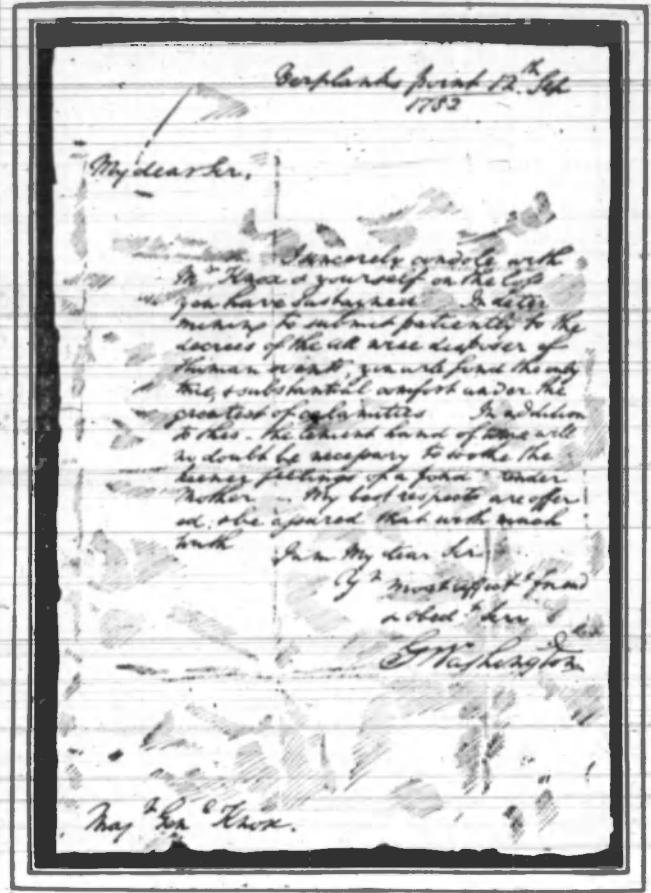 Verplanks point 12.th Sep
1782
My dear Sir,
I sincerely condole with
Mrs Knox & yourself on the loss
you have sustained In deter
mining to submit patiently to the
decrees of the all wise disposer of
Human events, you will find the only
true, & substantial comfort under the
greatest of calamities In addition
to this - the lenient hand of time will
no doubt be necessary to soothe the
keener feelings of a fond tender
Mother My best respects are offer
ed, & be assured that with much
truth
I am My dear Sir
Yr most affect.e friend
& obed.t Serv
G Washington
Maj.r Gen.l Knox.